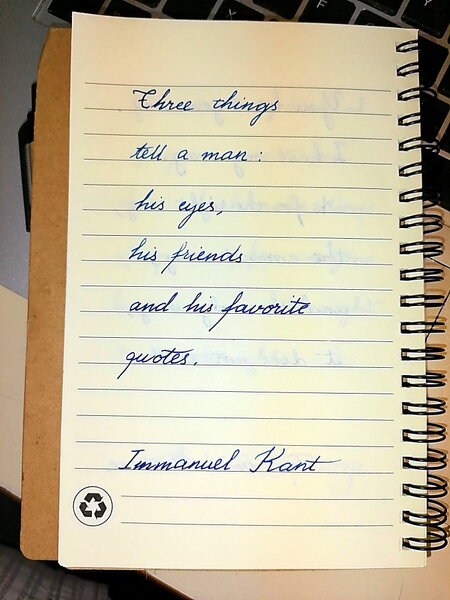 Three things
tell a man:
his eyes,
his friends
and his favorite
quotes.
Immanuel Kant